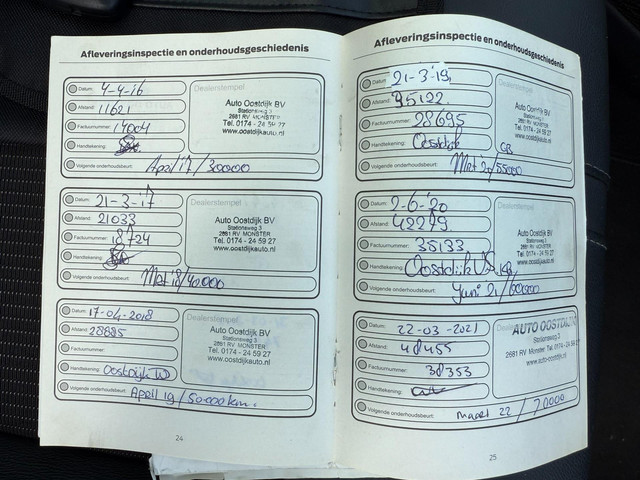 Afleveringsinspectie en onderhoudsgeschiedenis
Datum: 4-4-16
Afstand: 11621
Factuurnummer: 14004
Handtekening:
Volgende onderhoudsbeurt: April 17/30000
Dealerstempel
Auto Oostdijk BV
Stationsweg 3
2681 RV MONSTER
Tel. 0174 - 24 59 27
www.oostdijkauto.nl
Datum: 21-3-17
Afstand: 21033
Factuurnummer: 18724
Handtekening:
Volgende onderhoudsbeurt: Mrt 18/40.000
Dealerstempel
Auto Oostdijk BV
Stationsweg 3
2681 RV MONSTER
Tel. 0174 - 24 59 27
www.oostdijkauto.nl
Datum: 17-04-2018
Afstand: 28885
Factuurnummer:
Handtekening: Oostdijk
Volgende onderhoudsbeurt: April 19/50000 km.
Dealerstempel
Auto Oostdijk BV
Stationsweg 3
2681 RV MONSTER
Tel. 0174 - 24 59 27
www.oostdijkauto.nl
24
Afleveringsinspectie en onderhoudsgeschiedenis
Datum: 21-3-'19
Afstand: 35122.
Factuurnummer: 28695
Handtekening: Oostdijk
Volgende onderhoudsbeurt: Mrt 20/55000
Dealerstempel
Auto Oostdijk BV
Stationsweg 3
2681 RV MONSTER
Tel. 0174 - 24 59 27
www.oostdijkauto.nl
Datum: 2-6-'20
Afstand: 42279
Factuurnummer: 35133
Handtekening: Oostdijk
Volgende onderhoudsbeurt: Juni 21/60.000
Dealerstempel
Auto Oostdijk BV
Stationsweg 3
2681 RV MONSTER
Tel. 0174 - 24 59 27
www.oostdijkauto.nl
Datum: 22-03-2021
Afstand: 48455
Factuurnummer: 38353
Handtekening:
Volgende onderhoudsbeurt: maart 22 / 70000
Dealerstempel
AUTO OOSTDIJK
Stationsweg 3
2681 RV Monster Tel.
www.auto-oostdijk.nl
25